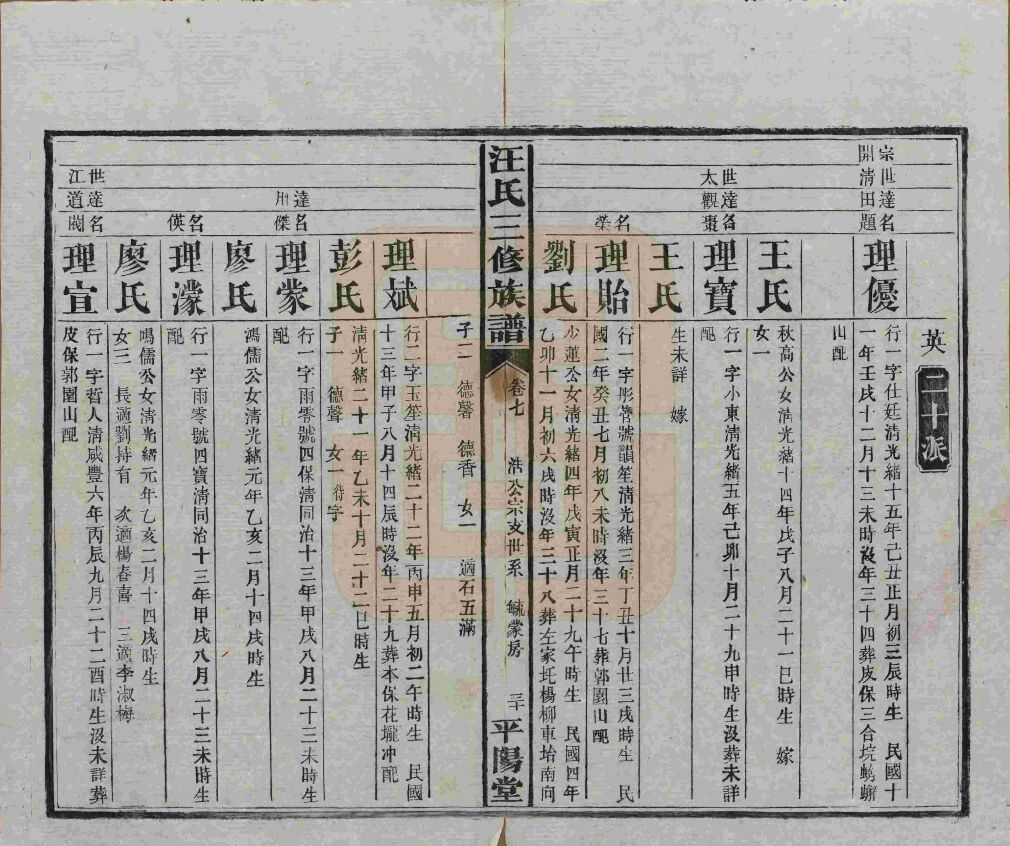 英
二十派
宗世達名
開清田題
理優
行一字仕廷清光緒十五年己丑正月初三辰時生 民國十
一年壬戌十二月十三未時沒年三十四葬皮保三合垸螃蠏
山配
王氏
秋高公女清光緒十四年戊子八月二十一巳時生 嫁
女一
世達名
太觀棗
理寶
行一字小東清光緒五年己卯十月二十九申時生沒葬未詳
配
王氏
生未詳 嫁
名
榮
理貽
行一字彤管號韻笙清光緒三年丁丑十月廿三戌時生 民
國二年癸丑七月初八未時沒年三十七葬郭園山配
劉氏
少蓮公女清光緒四年戊寅正月二十九午時生 民國四年
乙卯十一月初六戌時沒年三十八葬左家圫楊柳車坮南向
汪氏三修族譜
卷七
浩公宗支世系 毓蒙房
三十
平陽堂
子二 德馨 德香 女一 適石五滿
理斌
行二字玉笙清光緒二十二年丙申五月初二午時生 民國
十三年甲子八月十四辰時沒年二十九葬本保花壠冲配
彭氏
清光緒二十一年乙未十月二十二巳時生
子一 德聲 女一待字
達名
用傑
理蒙
行一字雨零號四保清同治十三年甲戌八月二十三未時生
配
廖氏
鴻儒公女清光緒元年乙亥二月十四戌時生
名
僙
理濛
行一字雨零號四寶清同治十三年甲戌八月二十三未時生
配
廖氏
鳴儒公女清光緒元年乙亥二月十四戌時生
女三 長適劉持有 次適楊春喜 三適李淑梅
世達名
江道閣
理宣
行一字哲人清咸豐六年丙辰九月二十二酉時生沒未詳葬
皮保郭園山配